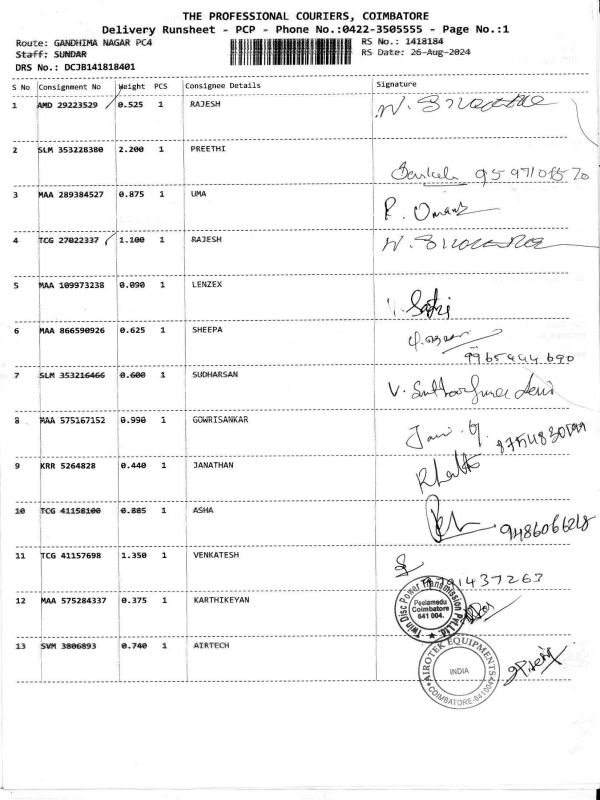 THE PROFESSIONAL COURIERS, COIMBATORE
Delivery Runsheet - PCP - Phone No.:0422-3505555 - Page No.:1
Route: GANDHIMA NAGAR PC4 RS No.: 1418184
Staff: SUNDAR RS Date: 26-Aug-2024
DRS No.: DCJB141818401
S No Consignment No Weight PCS Consignee Details Signature
1 AMD 29223529 0.525 1 RAJESH
2 SLM 353228380 2.200 1 PREETHI
3 MAA 289384527 0.875 1 UMA
4 TCG 27022337 1.100 1 RAJESH
5 MAA 109973238 0.090 1 LENZEX
6 MAA 866590926 0.625 1 SHEEPA
9965944690
7 SLM 353216466 0.600 1 SUDHARSAN
8 MAA 575167152 0.990 1 GOWRISANKAR
9 KRR 5264828 0.440 1 JANATHAN
10 TCG 41158100 0.885 1 ASHA
9486066218
11 TCG 41157698 1.350 1 VENKATESH
12 MAA 575284337 0.375 1 KARTHIKEYAN
Twin Disc Power Transmission Pvt.Ltd.
Peelamedu
Coimbatore
641 004.
13 SVM 3806893 0.740 1 AIRTECH
AIROTEK EQUIPMENTS
INDIA
COIMBATORE-641004